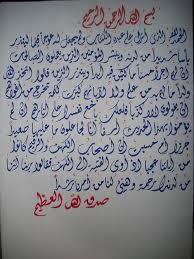 بسم الله الرحمن الرحيم
الحمد لله الذي أنزل على عبده الكتاب ولم يجعل له عوجا قيما لينذر
بأسا شديدا من لدنه ويبشر المؤمنين الذين يعملون الصالحات
أن لهم أجرا حسنا ماكثين فيه أبدا وينذر الذين قالوا اتخذ الله
ولدا ما لهم به من علم ولا لآبائهم كبرت كلمة تخرج من أفواههم
إن يقولون إلا كذبا فلعلك باخع نفسك على آثارهم إن لم
يؤمنوا بهذا الحديث أسفا إنا لجاعلون ما عليها صعيدا
جرزا أم حسبت أن أصحاب الكهف والرقيم كانوا
من آياتنا عجبا إذ أوى الفتية إلى الكهف فقالوا ربنا آتنا
من لدنك رحمة وهيئ لنا من أمرنا رشدا
صدق الله العظيم